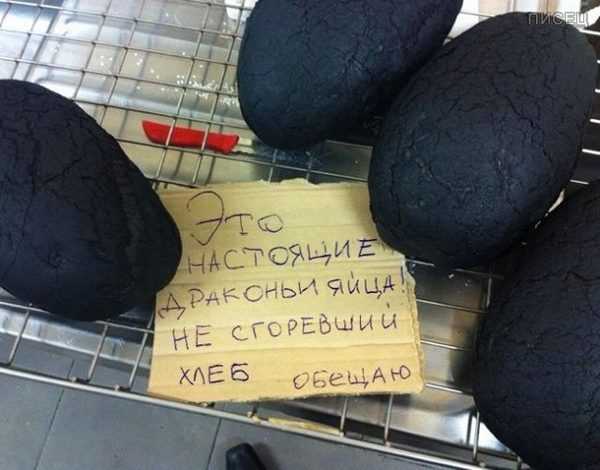 ПИСЕЦ
Это
НАСТОЯЩИЕ
ДРАКОНЬИ ЯЙЦА!
НЕ СГОРЕВШИЙ
ХЛЕБ ОБЕЩАЮ